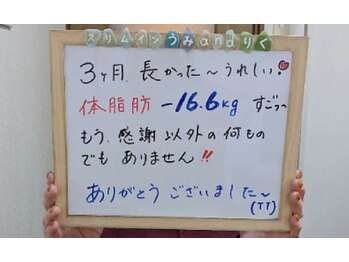 スリムインうみandりく
3ヶ月、長かった〜うれしい!
体脂肪 -16.6kg すごっ〜
もう、感謝以外の何もの
でもありません!!
ありがとうございました〜
(TT)